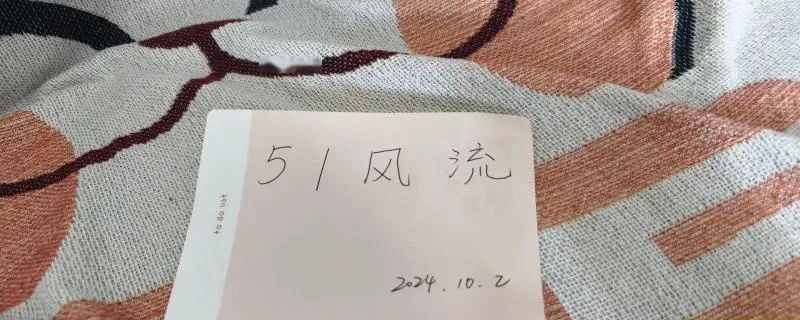 51风流
to do list
2024.10.2